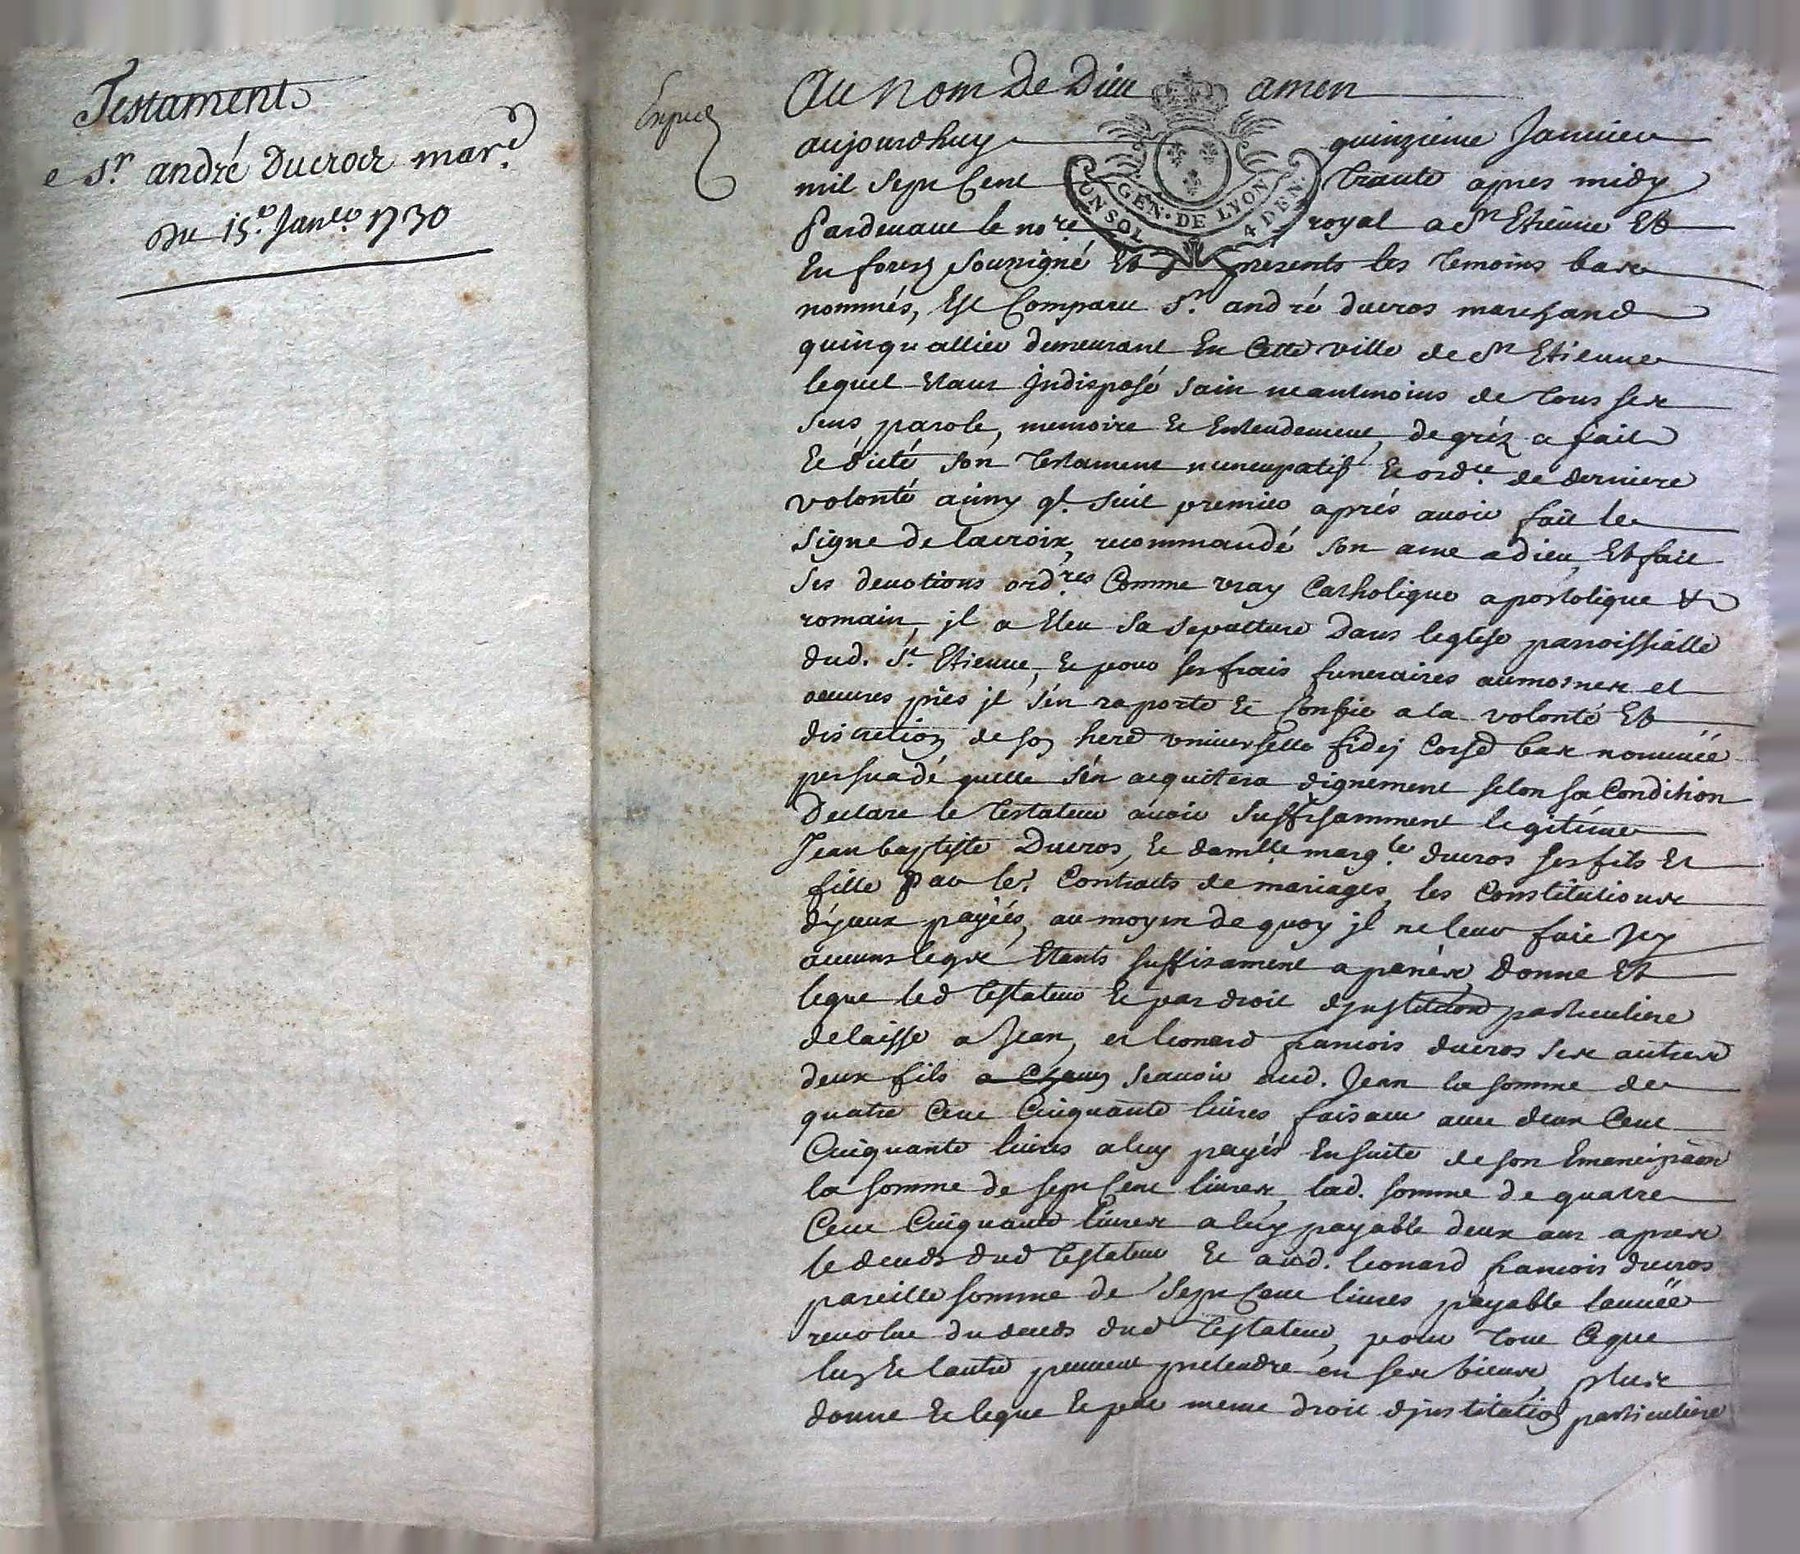 Testament
e Sr. andré Ducros mard.
Du 15e. Janer. 1730
Au Nom De Dieu amen
aujourdhuy quinzieme Janvier
mil Sept Cent Trante apres midy
Pardevant le nore royal a St Etienne Et
En forez Soussigné Et presents les temoins bas
nommés, Est Comparu Sr. andré ducros marchand
quinquallier demeurant En Cette ville de St Etienne
lequel Etant Jndisposé sain neantmoins de tous ses
sens parole, memoire Et Entendement, de gréz a fait
Et dicté son testament nuncupatif Et ordce. de derniere
volonté ainsy qt. suit premier aprés avoir fait le
signe de lacroix, recommandé son ame adieu, Et fait
ses devotions ordres. Comme vray Catholique apostolique &
romain, jl a Eleu sa sepulture dans leglise parroissialle
dud. St. Etienne, Et pour ses frais funeraires aumosnes et
oeuvres pies jl s'en raporte Et Confie a la volonté Et
discretion de son hered universelle fidej bas nommée
persuadé quelle s'en acquitera dignement selon sa Condition
Declare le testateur avoir suffisamment legitimé
Jean baptiste Ducros, Et damlle. margte. ducros ses fils Et
fille Par les. Contrats de mariages, les Constitutions
déjaux payées, au moyen de quoy jl ne leur fait Jcy
aucuns legs Etants suffisament apanés, donne Et
legue led testateur Et par droit djnstitution particuliere
delaisse a Jean, et leonard francois ducros ses autres
deux fils a Chacun scavoir aud. Jean la somme de
quatre Cent Cinquante livres faisant avec deux Cent
Cinquante livres aluy payés Ensuite de son Emancipaon
la somme de sept Cent livres, lad. somme de quatre
Cent Cinquante livres aluy payable deux ans apres
le deceds dud testateur Et aud. leonard francois ducros
pareille somme de sept Cent livres payable lannée
revolue du deceds dud testateur, pour tout Ceque
luy Et lautre peuvent pretendre en ses biens, plus
donne Et legue Et par meme droit djnstitution particuliere
GEN. DE LYON
CONSOL 4 DEN.